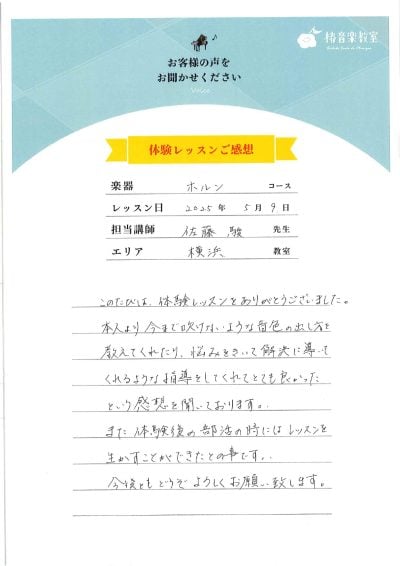 お客様の声を
お聞かせください
Voice
椿音楽教室
体験レッスンご感想
楽器 ホルン コース
レッスン日 2025年 5月 9日
担当講師 佐藤 駿 先生
エリア 横浜 教室
このたびは、体験レッスンをありがとうございました。
本人より今まで吹けないような音色の出し方を
教えてくれたり、悩みをきいて解決に導いて
くれるような指導をしてくれてとても良かった
という感想を聞いております。
また体験後の部活の時にはレッスンを
生かすことができたとの事です。
今後ともどうぞよろしくお願い致します。